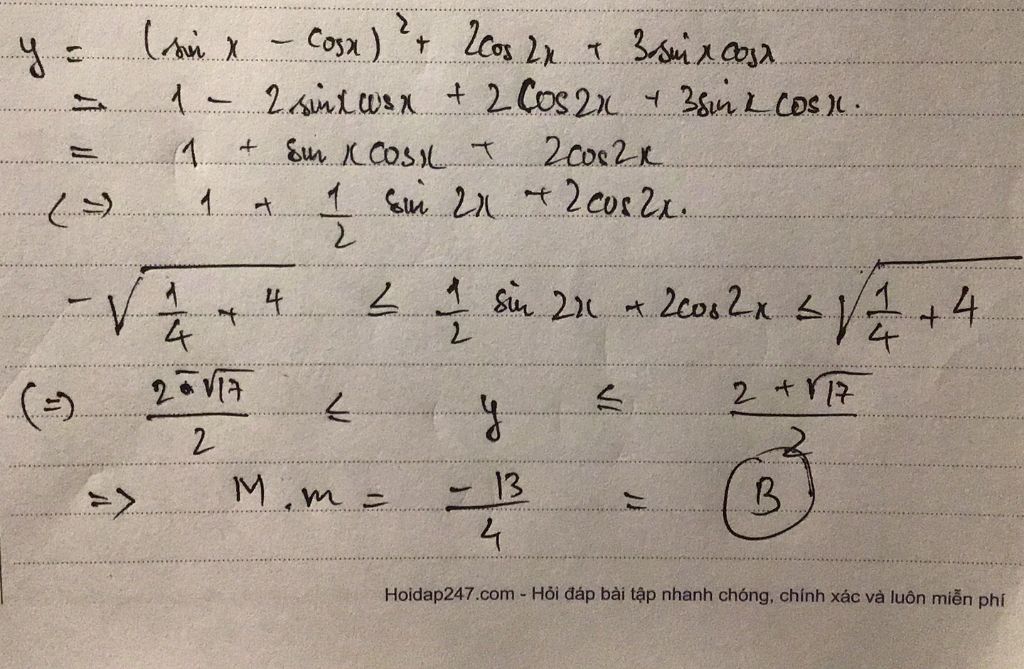 y = (sin x - cosx)² + 2cos2x + 3sinxcosx
= 1 - 2sinxcosx + 2Cos2x + 3sinxcosx.
= 1 + sinxcosx + 2cos2x
(=) 1 + 1/2 sin 2x + 2cos2x.
-√(1/4 + 4) ≤ 1/2 sin 2x + 2cos2x ≤ √(1/4 + 4)
(=) (2-√17)/2 ≤ y ≤ (2+√17)/2
=> M.m = -13/4 = B
Hoidap247.com - Hỏi đáp bài tập nhanh chóng, chính xác và luôn miễn phí